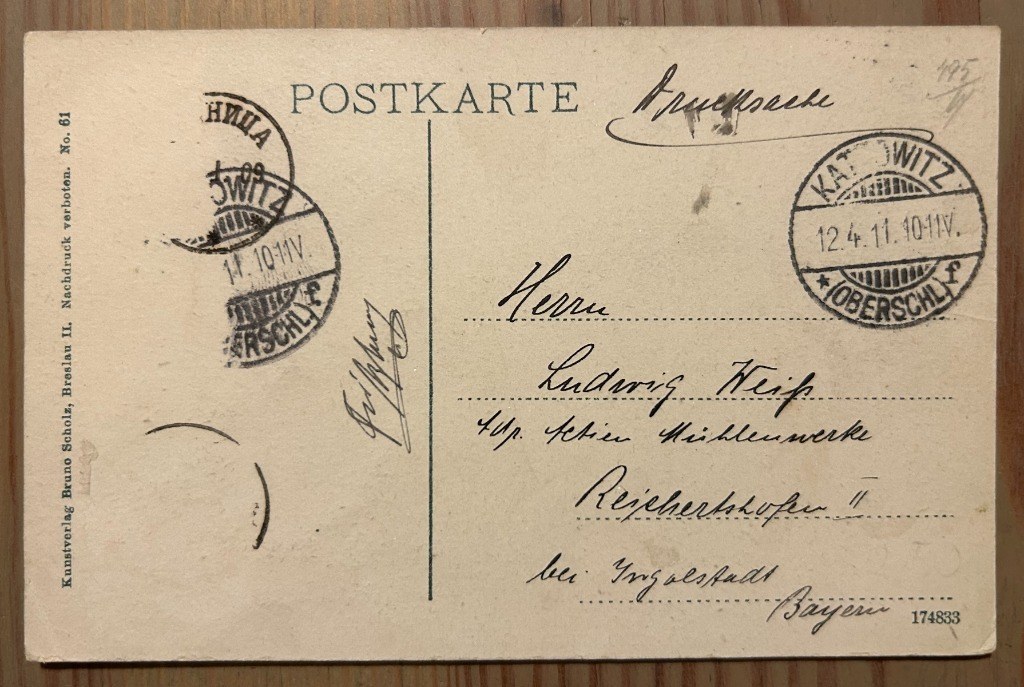 POSTKARTE
Drucksache
KATTOWITZ
12.4.11.10-11V.
* (OBERSCHL.) f
НИЦА
09
OWITZ
11.10-11V.
ERSCHL.) f
Herrn
Ludwig Weiß
Adr. Actien Mühlenwerke
Reichertshofen II
bei Ingolstadt
Bayern
174833
Kunstverlag Bruno Scholz, Breslau II. Nachdruck verboten. No. 61